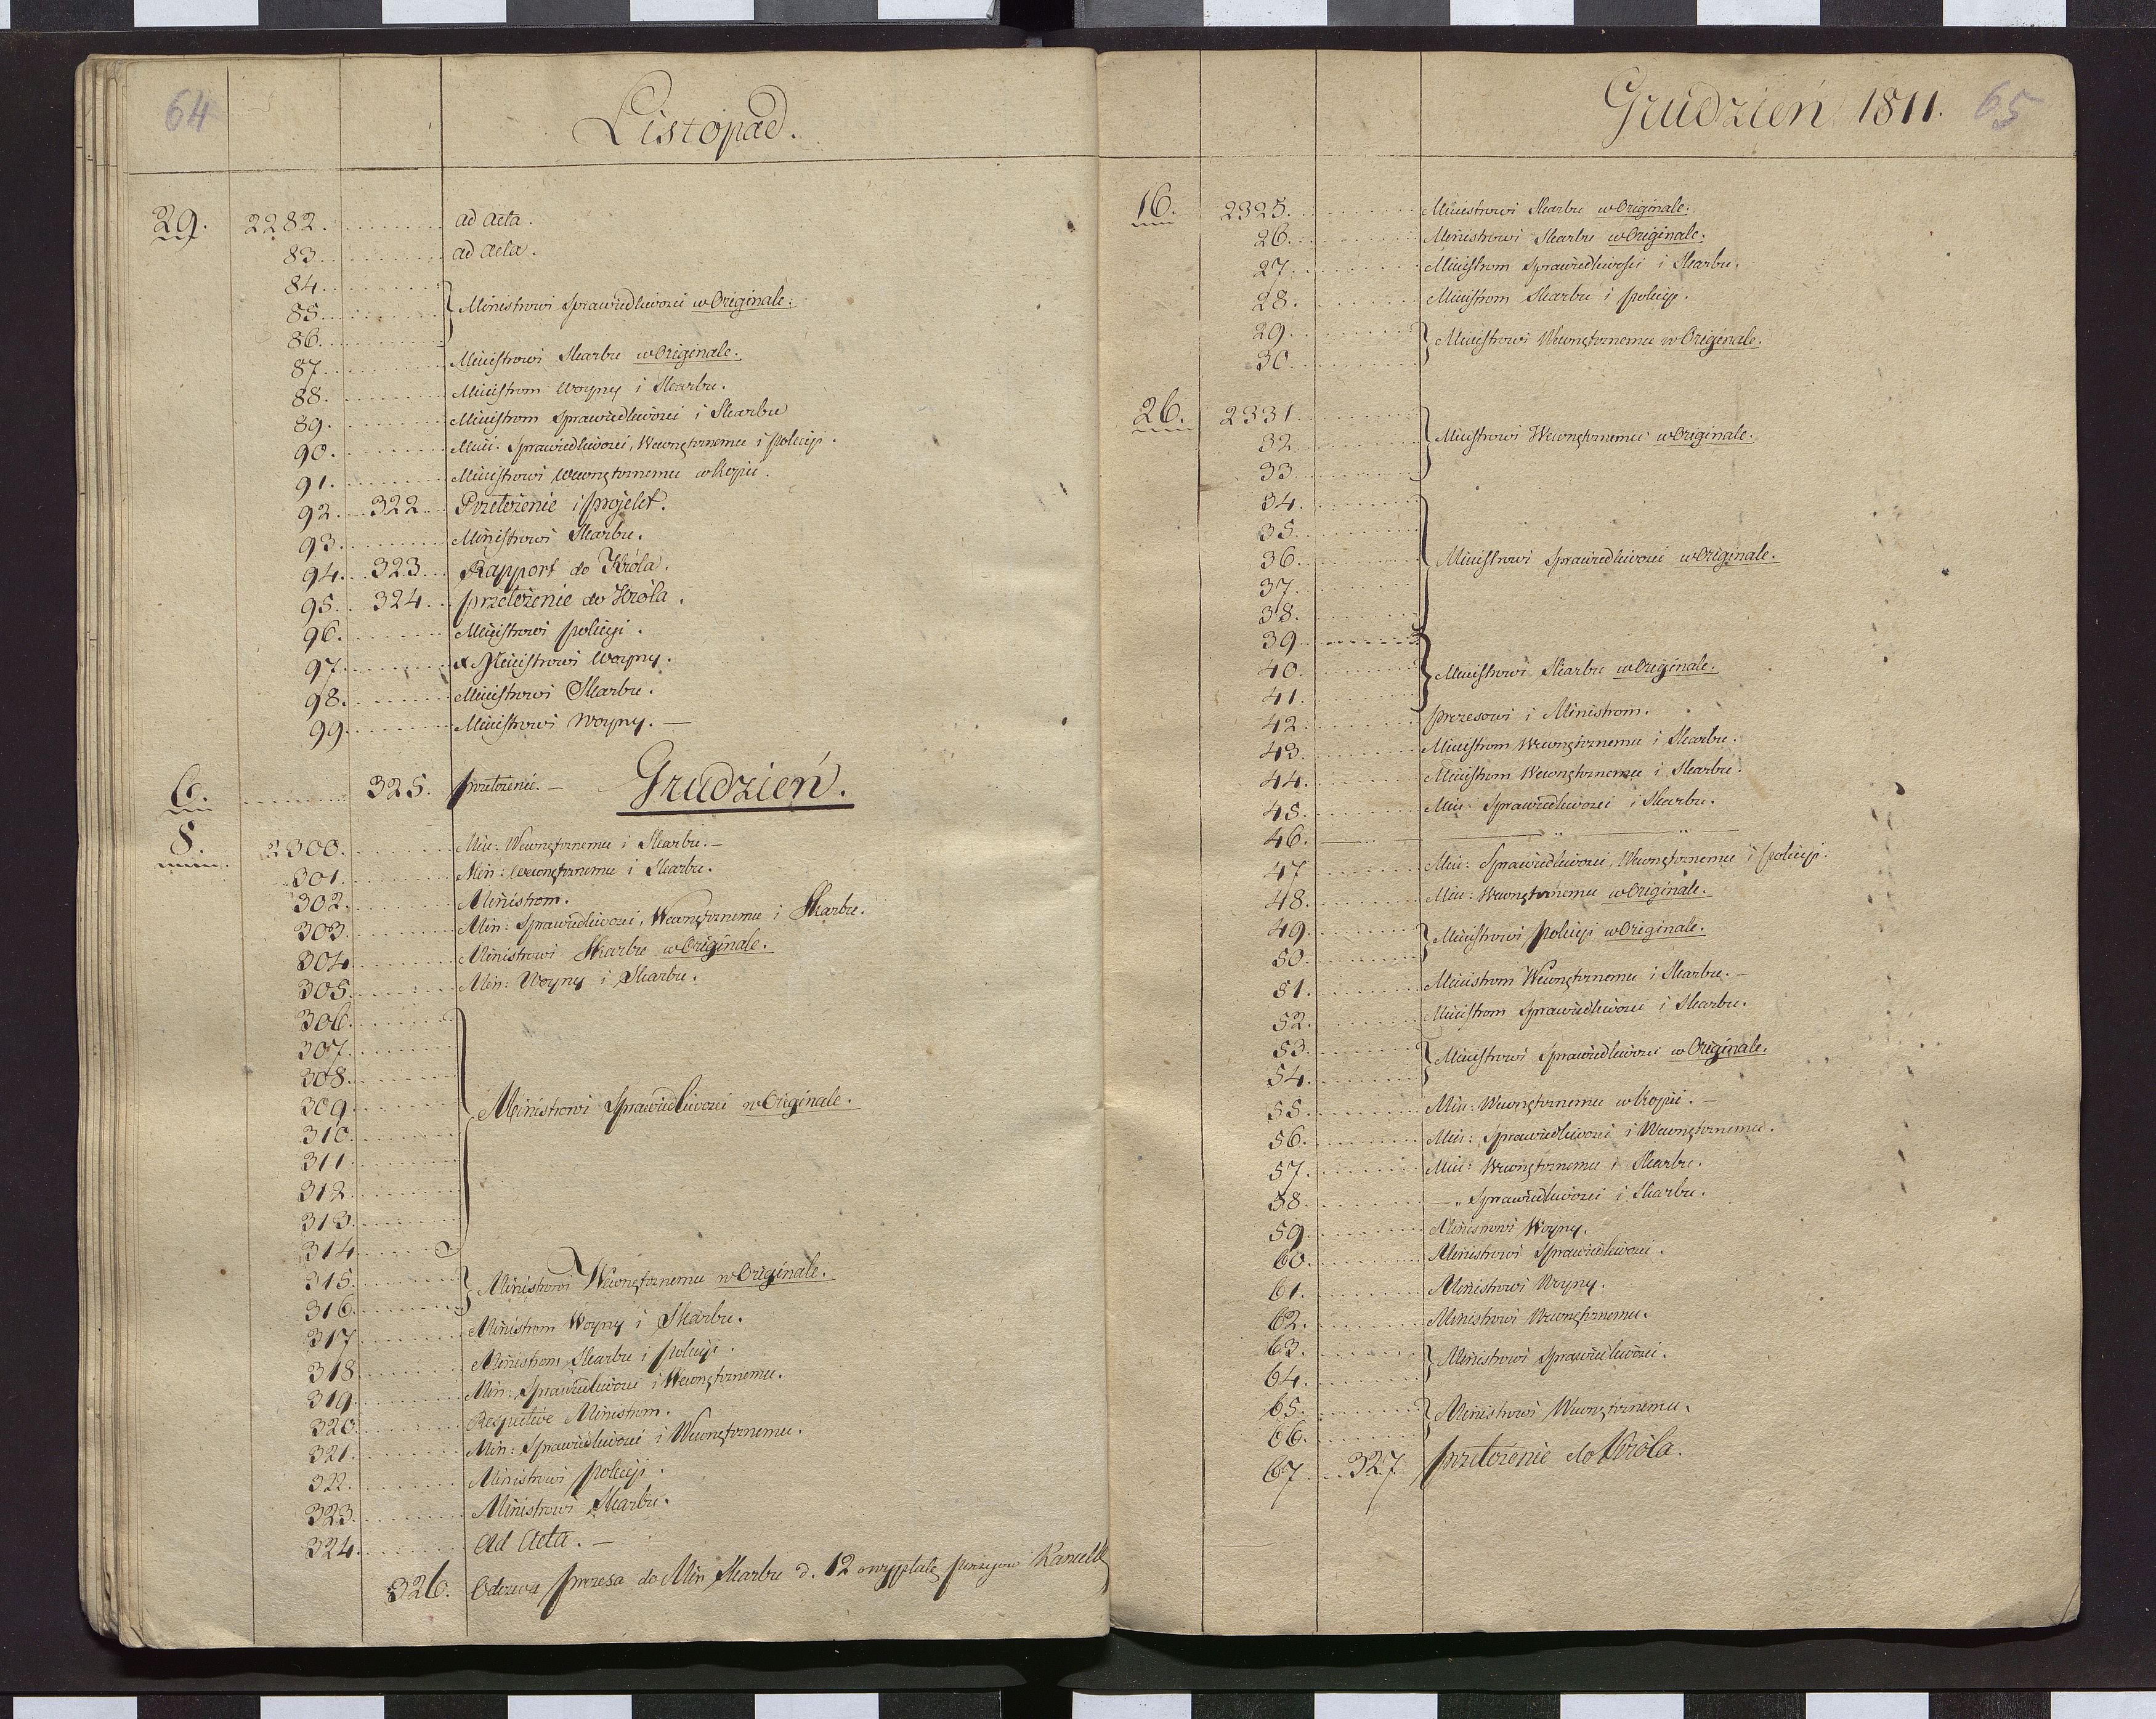 64
Listopad.
29. 2282. ad Acta.
83. ad Acta.
84.
85. Ministrowi Sprawiedliwości w Originale.
86.
87. Ministrowi Skarbu w Originale.
88. Ministrom Woyny i Skarbu.
89. Ministrom Sprawiedliwości i Skarbu
90. Min: Sprawiedliwości, Wewnętrznemu i Policyi.
91. Ministrowi Wewnętrznemu w Kopii.
92. 322 Przełożenie i projekt.
93. Ministrowi Skarbu.
94. 323 Rapport do Króla.
95. 324. przełożenie do Króla.
96. Ministrowi policyi.
97. Ministrowi Woyny.
98. Ministrowi Skarbu.
99. Ministrowi Woyny. —
6. 325. przełożenie. — Grudzień.
8. 2300. Min: Wewnętrznemu i Skarbu. —
301. Min: Wewnętrznemu i Skarbu.
302. Ministrom.
303. Min: Sprawiedliwości, Wewnętrznemu i Skarbu.
304. Ministrowi Skarbu w Originale.
305. Min: Woyny i Skarbu.
306.
307.
308.
309. Ministrowi Sprawiedliwości w Originale.
310.
311.
312.
313.
314.
315. Ministrowi Wewnętrznemu w Originale.
316.
317. Ministrom Woyny i Skarbu.
318. Ministrom Skarbu i policyi.
319. Min: Sprawiedliwości i Wewnętrznemu.
320. Respective Ministrom.
321. Min: Sprawiedliwości i Wewnętrznemu.
322. Ministrowi policyi.
323. Ministrowi Skarbu.
324. Ad Acta. —
326. Odezwa prezesa do Min Skarbu d. 12 o wypłatę
Grudzień 1811. 65
16. 2325. Ministrowi Skarbu w Originale.
26. Ministrowi Skarbu w Originale.
27. Ministrom Sprawiedliwości i Skarbu.
28. Ministrom Skarbu i policyi.
29. Ministrowi Wewnętrznemu w Originale.
30.
26. 2331
32 Ministrowi Wewnętrznemu w Originale.
33
34.
35.
36. Ministrowi Sprawiedliwości w Originale.
37.
38.
39
40. Ministrowi Skarbu w Originale.
41.
42. prezesowi i Ministrom.
43. Ministrom Wewnętrznemu i Skarbu.
44. Ministrom Wewnętrznemu i Skarbu.
45. Min: Sprawiedliwości i Skarbu.
46. — " — " —
47 Min: Sprawiedliwości, Wewnętrznemu i policyi.
48. Min: Wewnętrznemu w Originale.
49. Ministrowi Policyi w Originale.
50.
51. Ministrom Wewnętrznemu i Skarbu. —
52. Ministrom Sprawiedliwości i Skarbu.
53. Ministrowi Sprawiedliwości w Originale.
54.
55. Min: Wewnętrznemu w Kopii. —
56. Min: Sprawiedliwości i Wewnętrznemu.
57. Min: Wewnętrznemu i Skarbu.
58. — " Sprawiedliwości i Skarbu.
59. Ministrowi Woyny.
60. Ministrowi Sprawiedliwości.
61. Ministrowi Woyny.
62. Ministrowi Wewnętrznemu.
63. Ministrowi Sprawiedliwości.
64.
65. Ministrowi Wewnętrznemu.
66.
67. 327 przełożenie do Króla.